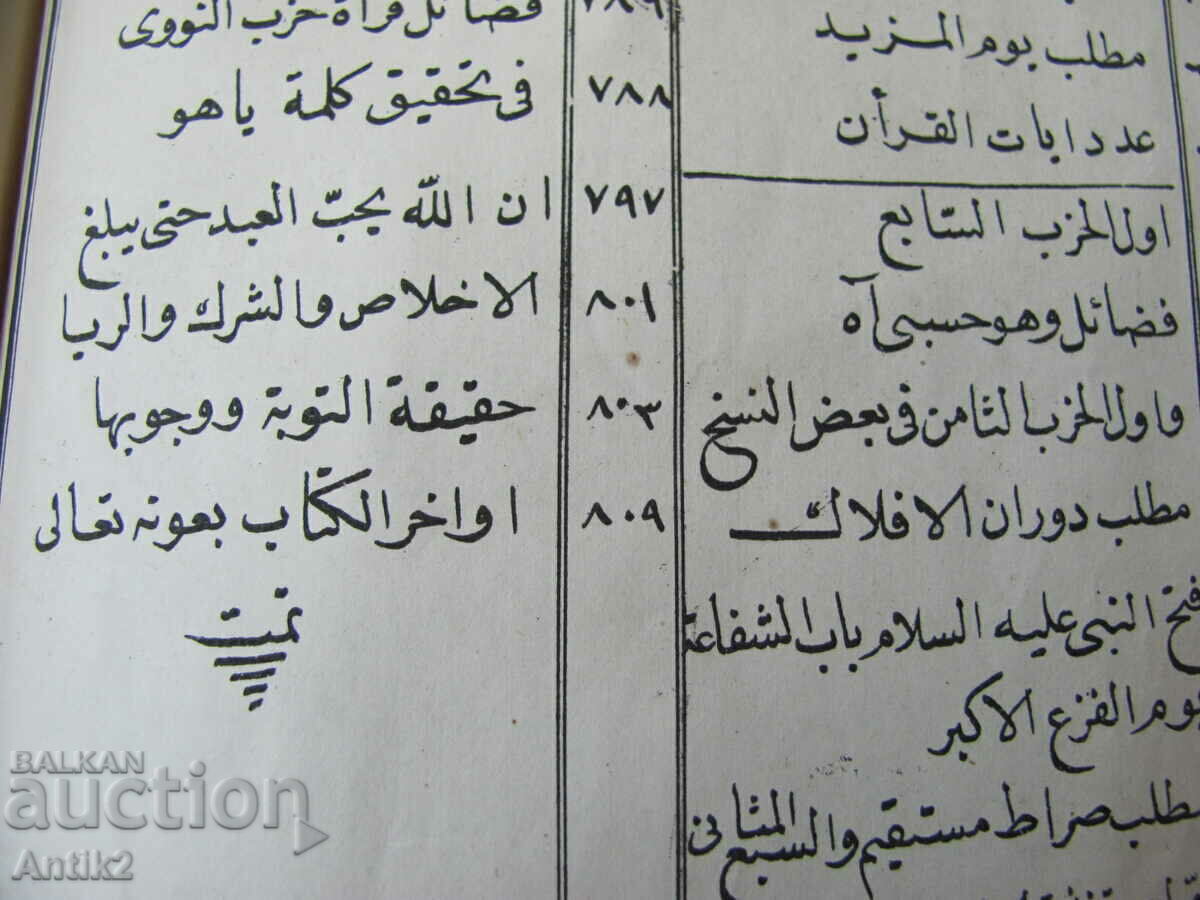 مطلب يوم المزيد
عدد ايات القرأن
اول الحزب السابع
فضائل وهو حسبى آه
واول الحزب الثامن فى بعض النسخ
مطلب دوران الافلاك
فتح النبى عليه السلام باب الشفاعة
يوم الفزع الاكبر
مطلب صراط مستقيم والسبع المثانى
فضائل قرأة حزب النووى
٧٨٨ فى تحقيق كلمة ياهو
٧٩٧ ان الله يحبّ العبد حتى يبلغ
٨٠١ الاخلاص والشرك والريا
٨٠٣ حقيقة التوبة ووجوبها
٨٠٩ اواخر الكتاب بعونه تعالى
تمت
BALKAN
auction
Antik2